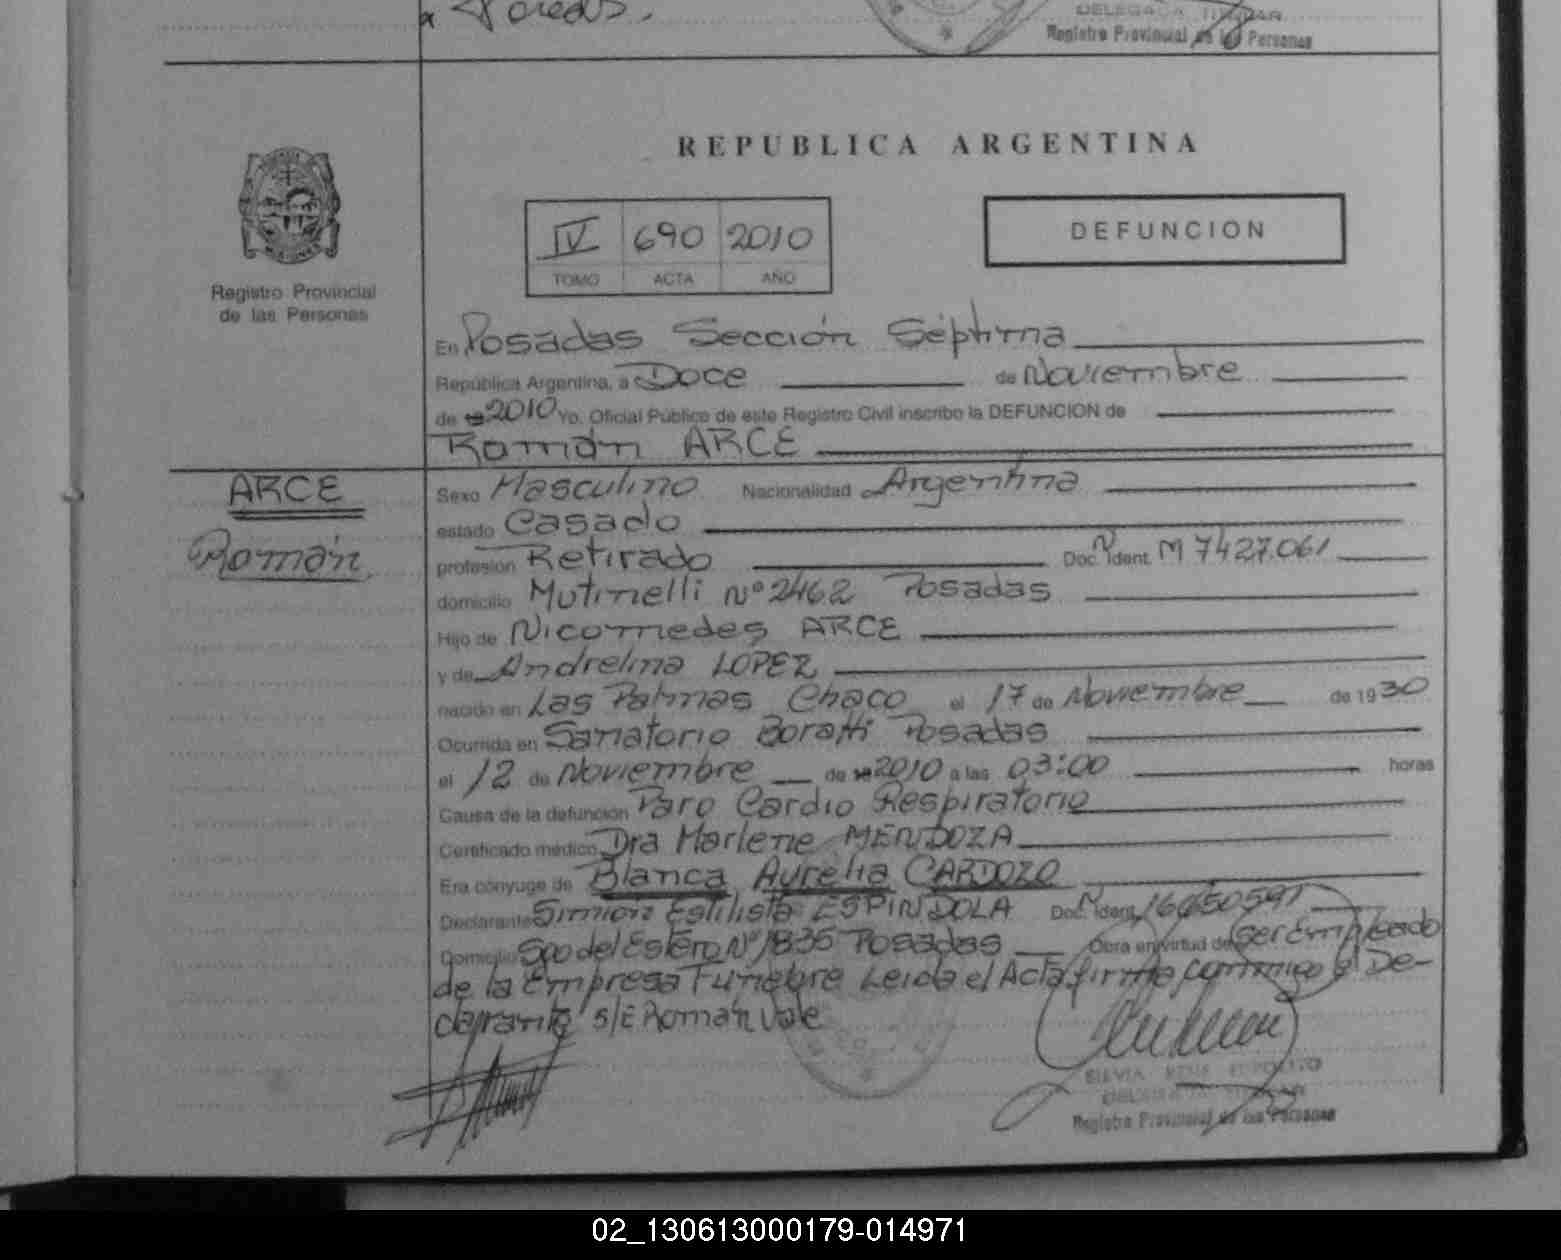 DELEGADA TITULAR
Registro Provincial de las Personas
REPUBLICA ARGENTINA
IV 690 2010
TOMO ACTA AÑO
DEFUNCION
Registro Provincial
de las Personas
En Posadas Sección Séptima
República Argentina, a Doce de Noviembre
de 19 2010 Yo, Oficial Público de este Registro Civil inscribo la DEFUNCION de
Román ARCE
ARCE
Román
Sexo Masculino Nacionalidad Argentina
estado Casado
profesión Retirado Doc. N Ident. M 7427.061
domicilio Mutinelli Nº 2462 Posadas
Hijo de Nicomedes ARCE
y de Andrelina LOPEZ
nacido en Las Palmas Chaco el 17 de Noviembre de 1930
Ocurrida en Sanatorio Boratti Posadas
el 12 de Noviembre de 19 2010 a las 03:00 horas
Causa de la defunción Paro Cardio Respiratorio
Certificado médico Dra Marlene MENDOZA
Era cónyuge de Blanca Aurelia CARDOZO
Declarante Simion Estilista ESPINDOLA Doc. N Ident. 16650591
Domicilio Sgo del Estero Nº 1835 Posadas Obra en virtud de ser Empleado
de la Empresa Funebre Leida el Acta firma conmigo el De-
clarante s/E Román Vale
DELEGADA TITULAR
Registro Provincial de las Personas
02_130613000179-014971